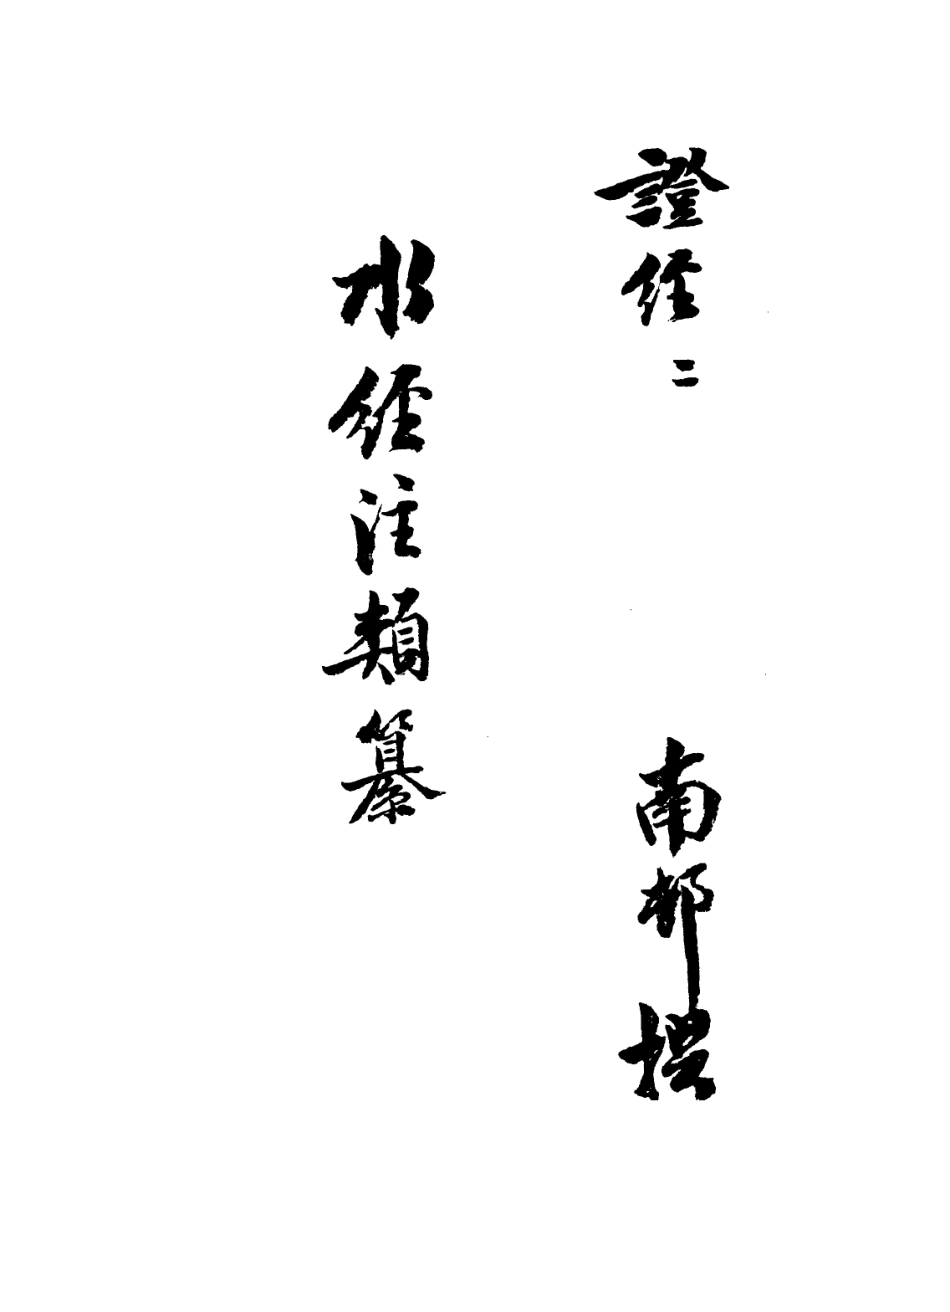 證經二
南部檔
水經注類纂